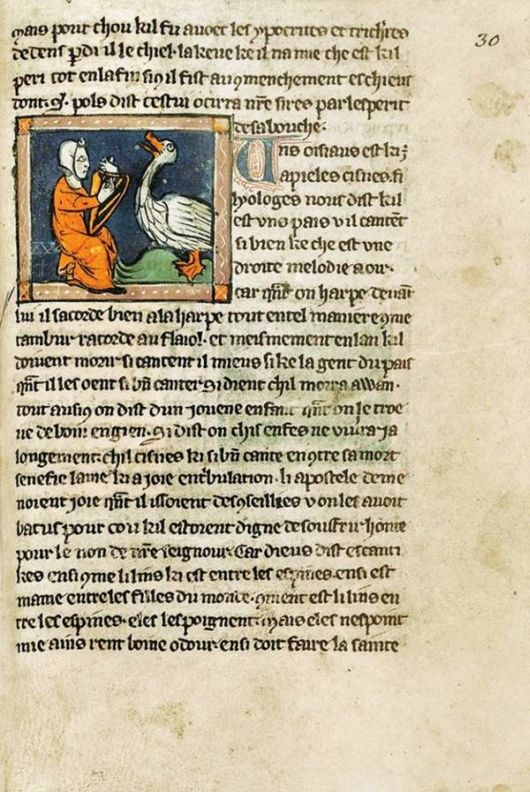 30
mais pour chou kil fu avoec les ypocrites et trichires
dedens pdi il le chiel. la keue ke il na mie che est kil
peri tot en la fin si 9 il fist au 9menchement es chieus
dont. s. pols dist cestui ocirra nre sires par lesperit
de sa bouche.
Uns oisiaus est ki
apieles cisnes. fi
syologes nous dist kil
est uns pais u il cantet
si bien ke che est une
droite melodie a oir.
car qnt on harpe devant
lui il sacorde bien a la harpe tout en tel maniere 9me
tambur racorde au flaiol. et meismement en lan kil
doivent morir si cantent il mieus si ke la gent du pais
qnt il les oent si bn canter. si dient chil morra awan.
tout ausi 9 on dist dun jovene enfant qnt on le troe
ve de boin engien. si dist on chis enfes ne vivra ja
longement. chil cisnes ki si bn cante en 9tre sa mort
senefie lame ki a joie en tbulation. li apostele deme
noient joie qnt il issoient des 9seilles u on les avoit
batus pour cou kil estoient digne de souffrir honte
pour le non de nre seignour. Car dieus dist es canti
kes ensi 9me li lilis ki est entre les espines. ensi est
mamie entre les filles du monde. 9ment est li lilis en
tre les espines. eles les poignent. mais eles nespoint
mie ains rent boine odour. ensi doit faire la sainte